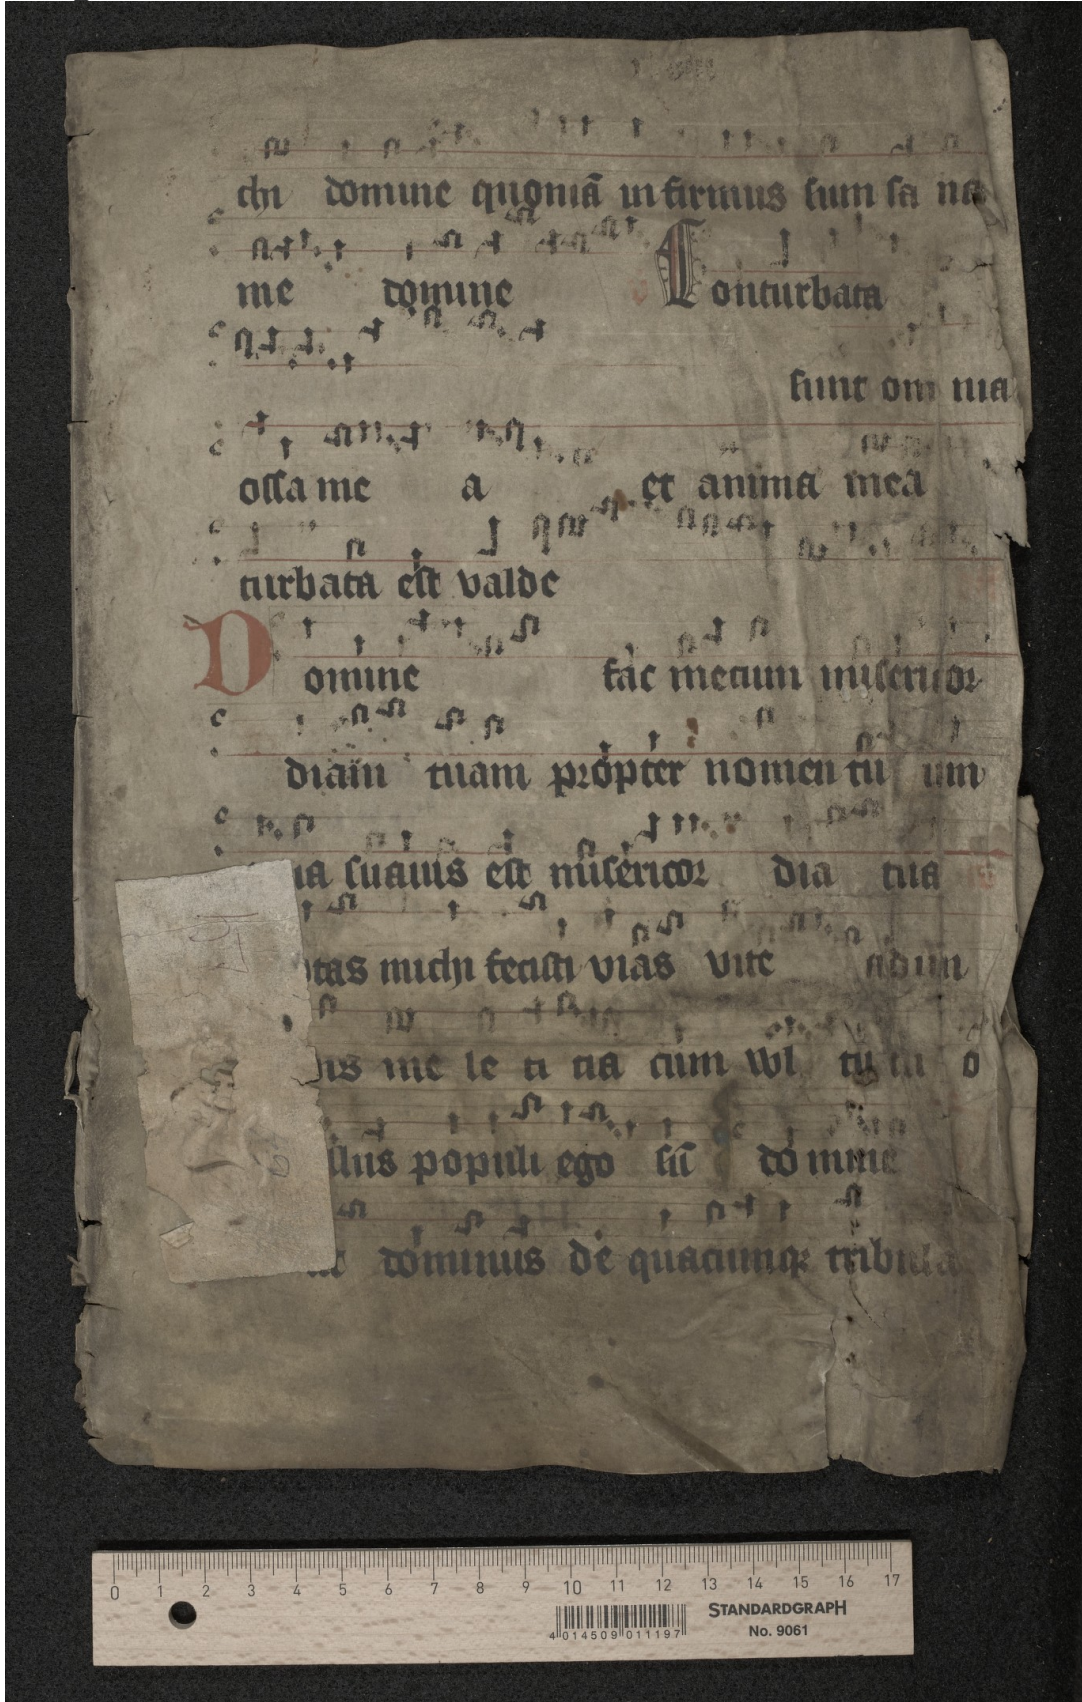 chi domine quoniā infirmus sum sa na
me domine Conturbata
sunt om nia
ossa me a et anima mea
turbata est valde
Domine fac mecum misericor
diam tuam propter nomen tu um
ia suauis est misericor dia tua
otas michi fecisti vias vite adim
bis me le ti cia cum wl tu tu o
llus populi ego sū domine
dominus de quacumqꝫ tribula
0 1 2 3 4 5 6 7 8 9 10 11 12 13 14 15 16 17
STANDARDGRAPH
No. 9061
4 014509 011197